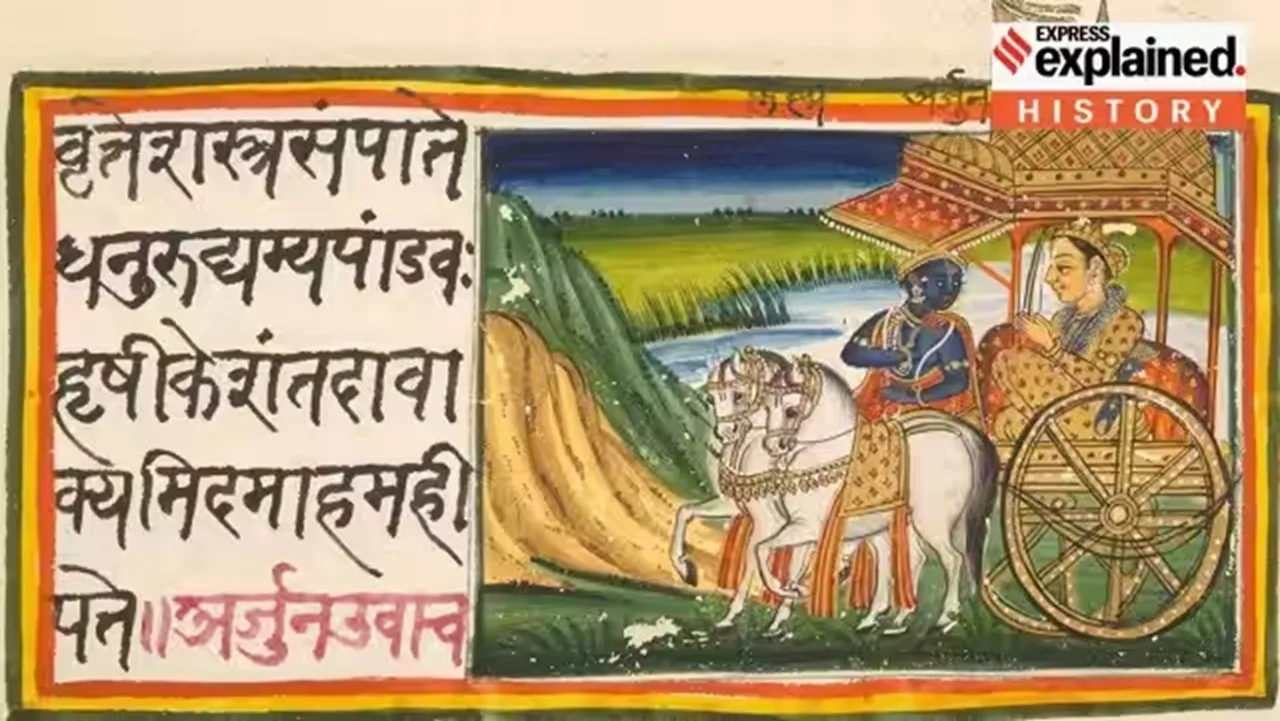 अर्जुन
EXPRESS
explained.
HISTORY
वृत्तेशस्त्रसंपाते
धनुरुद्यम्यपांडवः
हृषीकेशंतदावा
क्यमिदमाहमही
पते॥अर्जुनउवाच